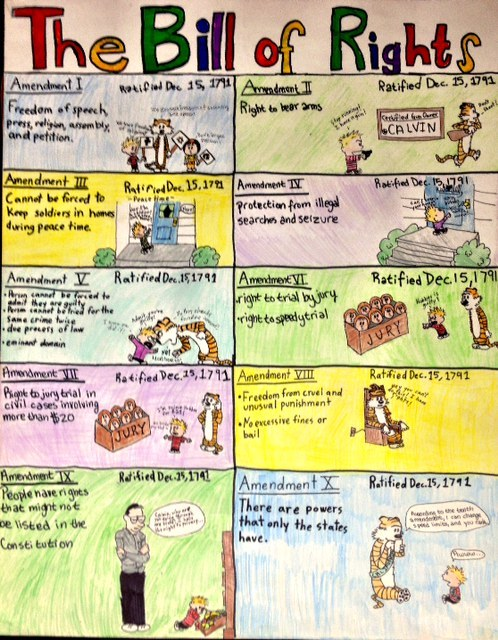 The Bill of Rights
Amendment I Ratified Dec. 15, 1791
Freedom of speech,
press, religion, assembly,
and petition.
Amendment II Ratified Dec. 15, 1791
Right to bear arms
Certified Gun Owner
CALVIN
Amendment III Ratified Dec. 15, 1791
Cannot be forced to
keep soldiers in homes
during peace time.
- Peace time -
Amendment IV Ratified Dec. 15, 1791
protection from illegal
searches and seizure
Amendment V Ratified Dec. 15, 1791
• Person cannot be forced to
admit they are guilty
• Person cannot be tried for the
same crime twice
• due process of law
• eminent domain
Amendment VI Ratified Dec. 15, 1791
•right to trial by jury
•right to speedy trial
JURY
Amendment VII Ratified Dec. 15, 1791
Right to jury trial in
civil cases involving
more than $20
JURY
Amendment VIII Ratified Dec. 15, 1791
•Freedom from cruel and
unusual punishment
•No excessive fines or
bail
Amendment IX Ratified Dec. 15, 1791
People have rights
that might not
be listed in the
Constitution
Amendment X Ratified Dec. 15, 1791
There are powers
that only the states
have.
According to the tenth
amendment, I can change
speed limits, and you can't.